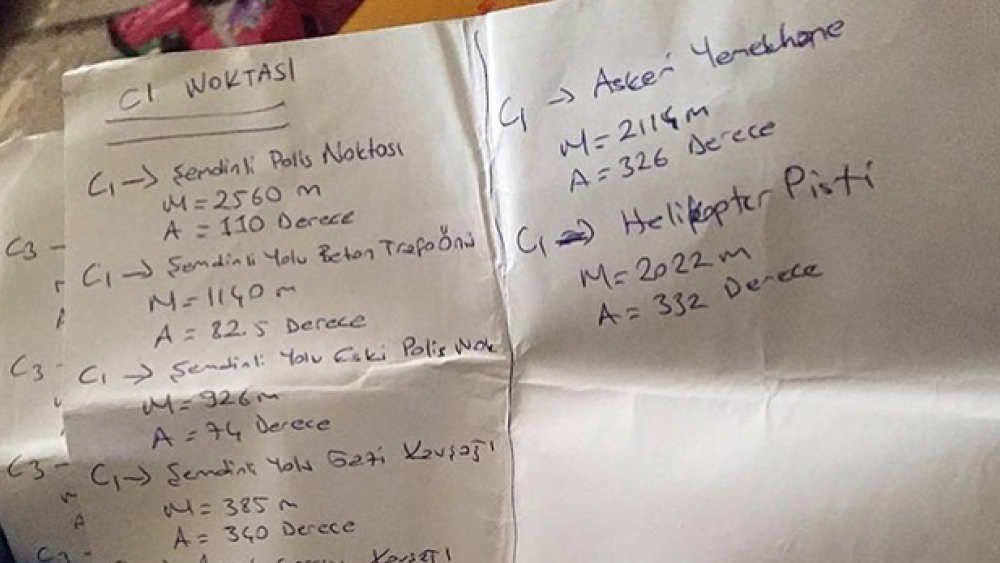 C1 NOKTASI
C1 → Şemdinli Polis Noktası
M = 2560 m
A = 110 Derece
C1 → Şemdinli Yolu Beton Trafo Önü
M = 1140 m
A = 82.5 Derece
C1 → Şemdinli Yolu Eski Polis Nok
M = 926 m
A = 74 Derece
C1 → Şemdinli Yolu Gezi Kavşağı
M = 385 m
A = 340 Derece
Kavşağı
C1 → Askeri Yemekhane
M = 2114 m
A = 326 Derece
C1 → Helikopter Pisti
M = 2022 m
A = 332 Derece
C3 -
A
C3 -
C3 -
A